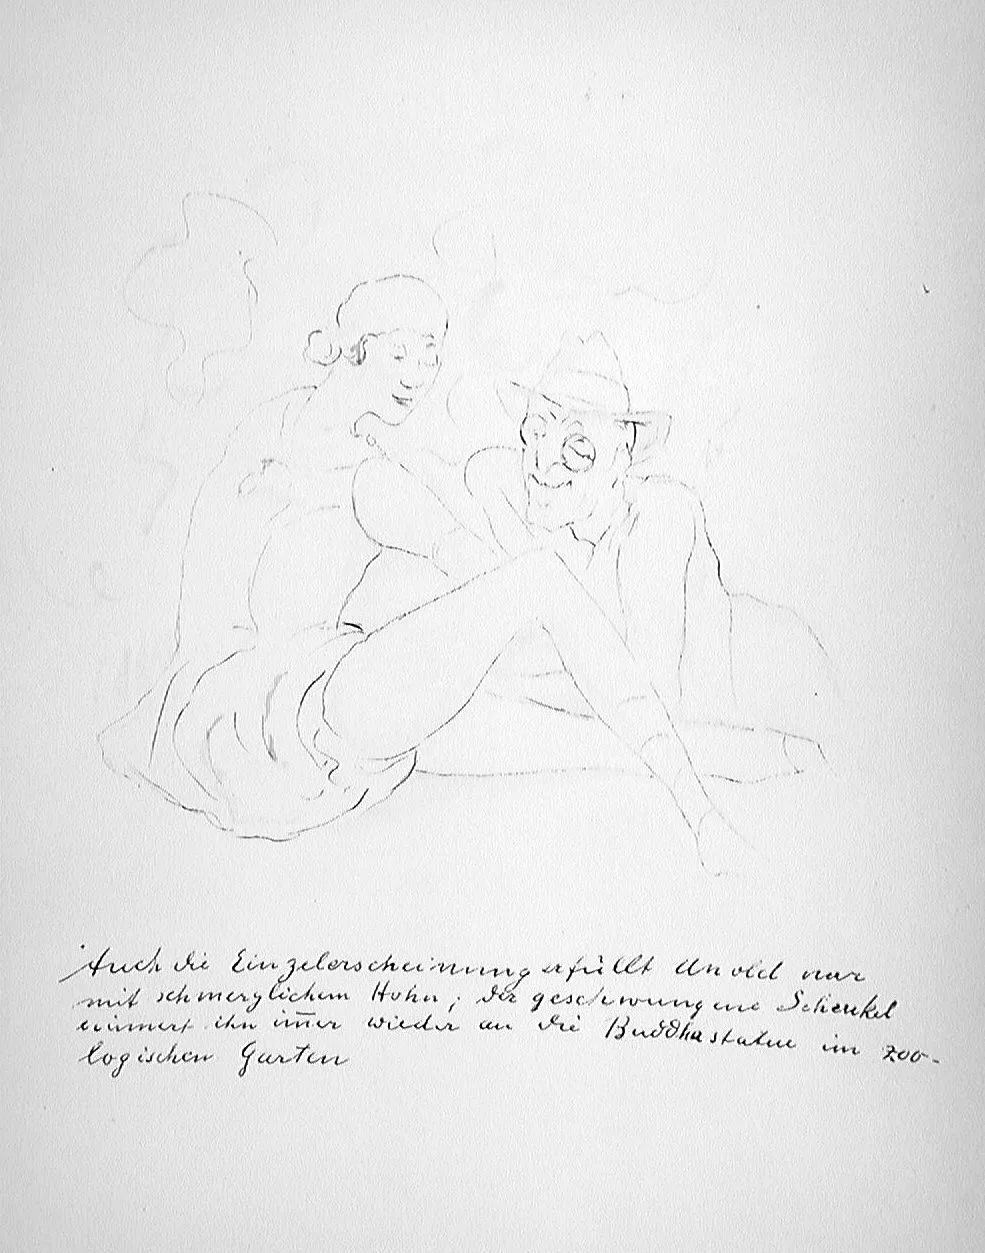 Auch die Einzelerscheinung erfüllt Unold nur
mit schmerzlichem Hohn; der geschwungene Schenkel
erinnert ihn im̅er wieder an die Buddhastatue im zoo-
logischen Garten